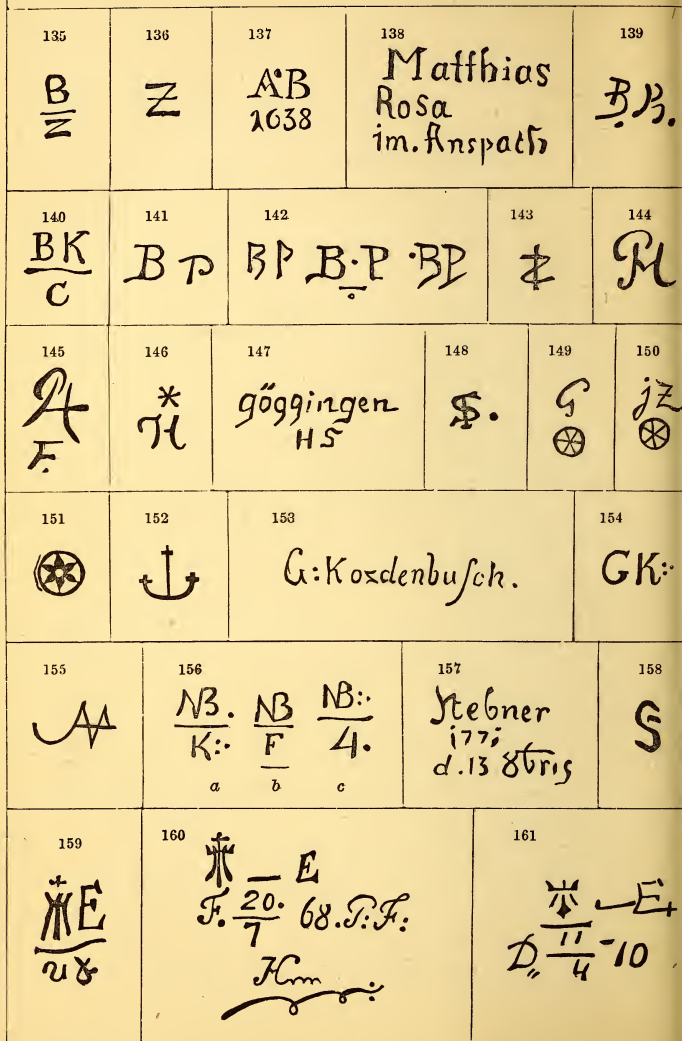 135
B
Z
136
Z
137
A·B
1638
138
Matthias
Rosa
im. Anspath
139
B. B.
140
BK
C
141
B P
142
BP B·P ·BP
143
Z
144
PH
145
PA
F.
146
*
H
147
göggingen
HS
148
S.
149
G
150
jZ
151
152
153
G:Kordenbuſch.
154
GK:·
155
156
NB. NB NB:·
K:· F 4.
a b c
157
Stebner
177j
d.13 8bris
158
S
159
E
160
E
F. 20./7 68. P:F:
Hmm
161
E
D,, 11/4 -10